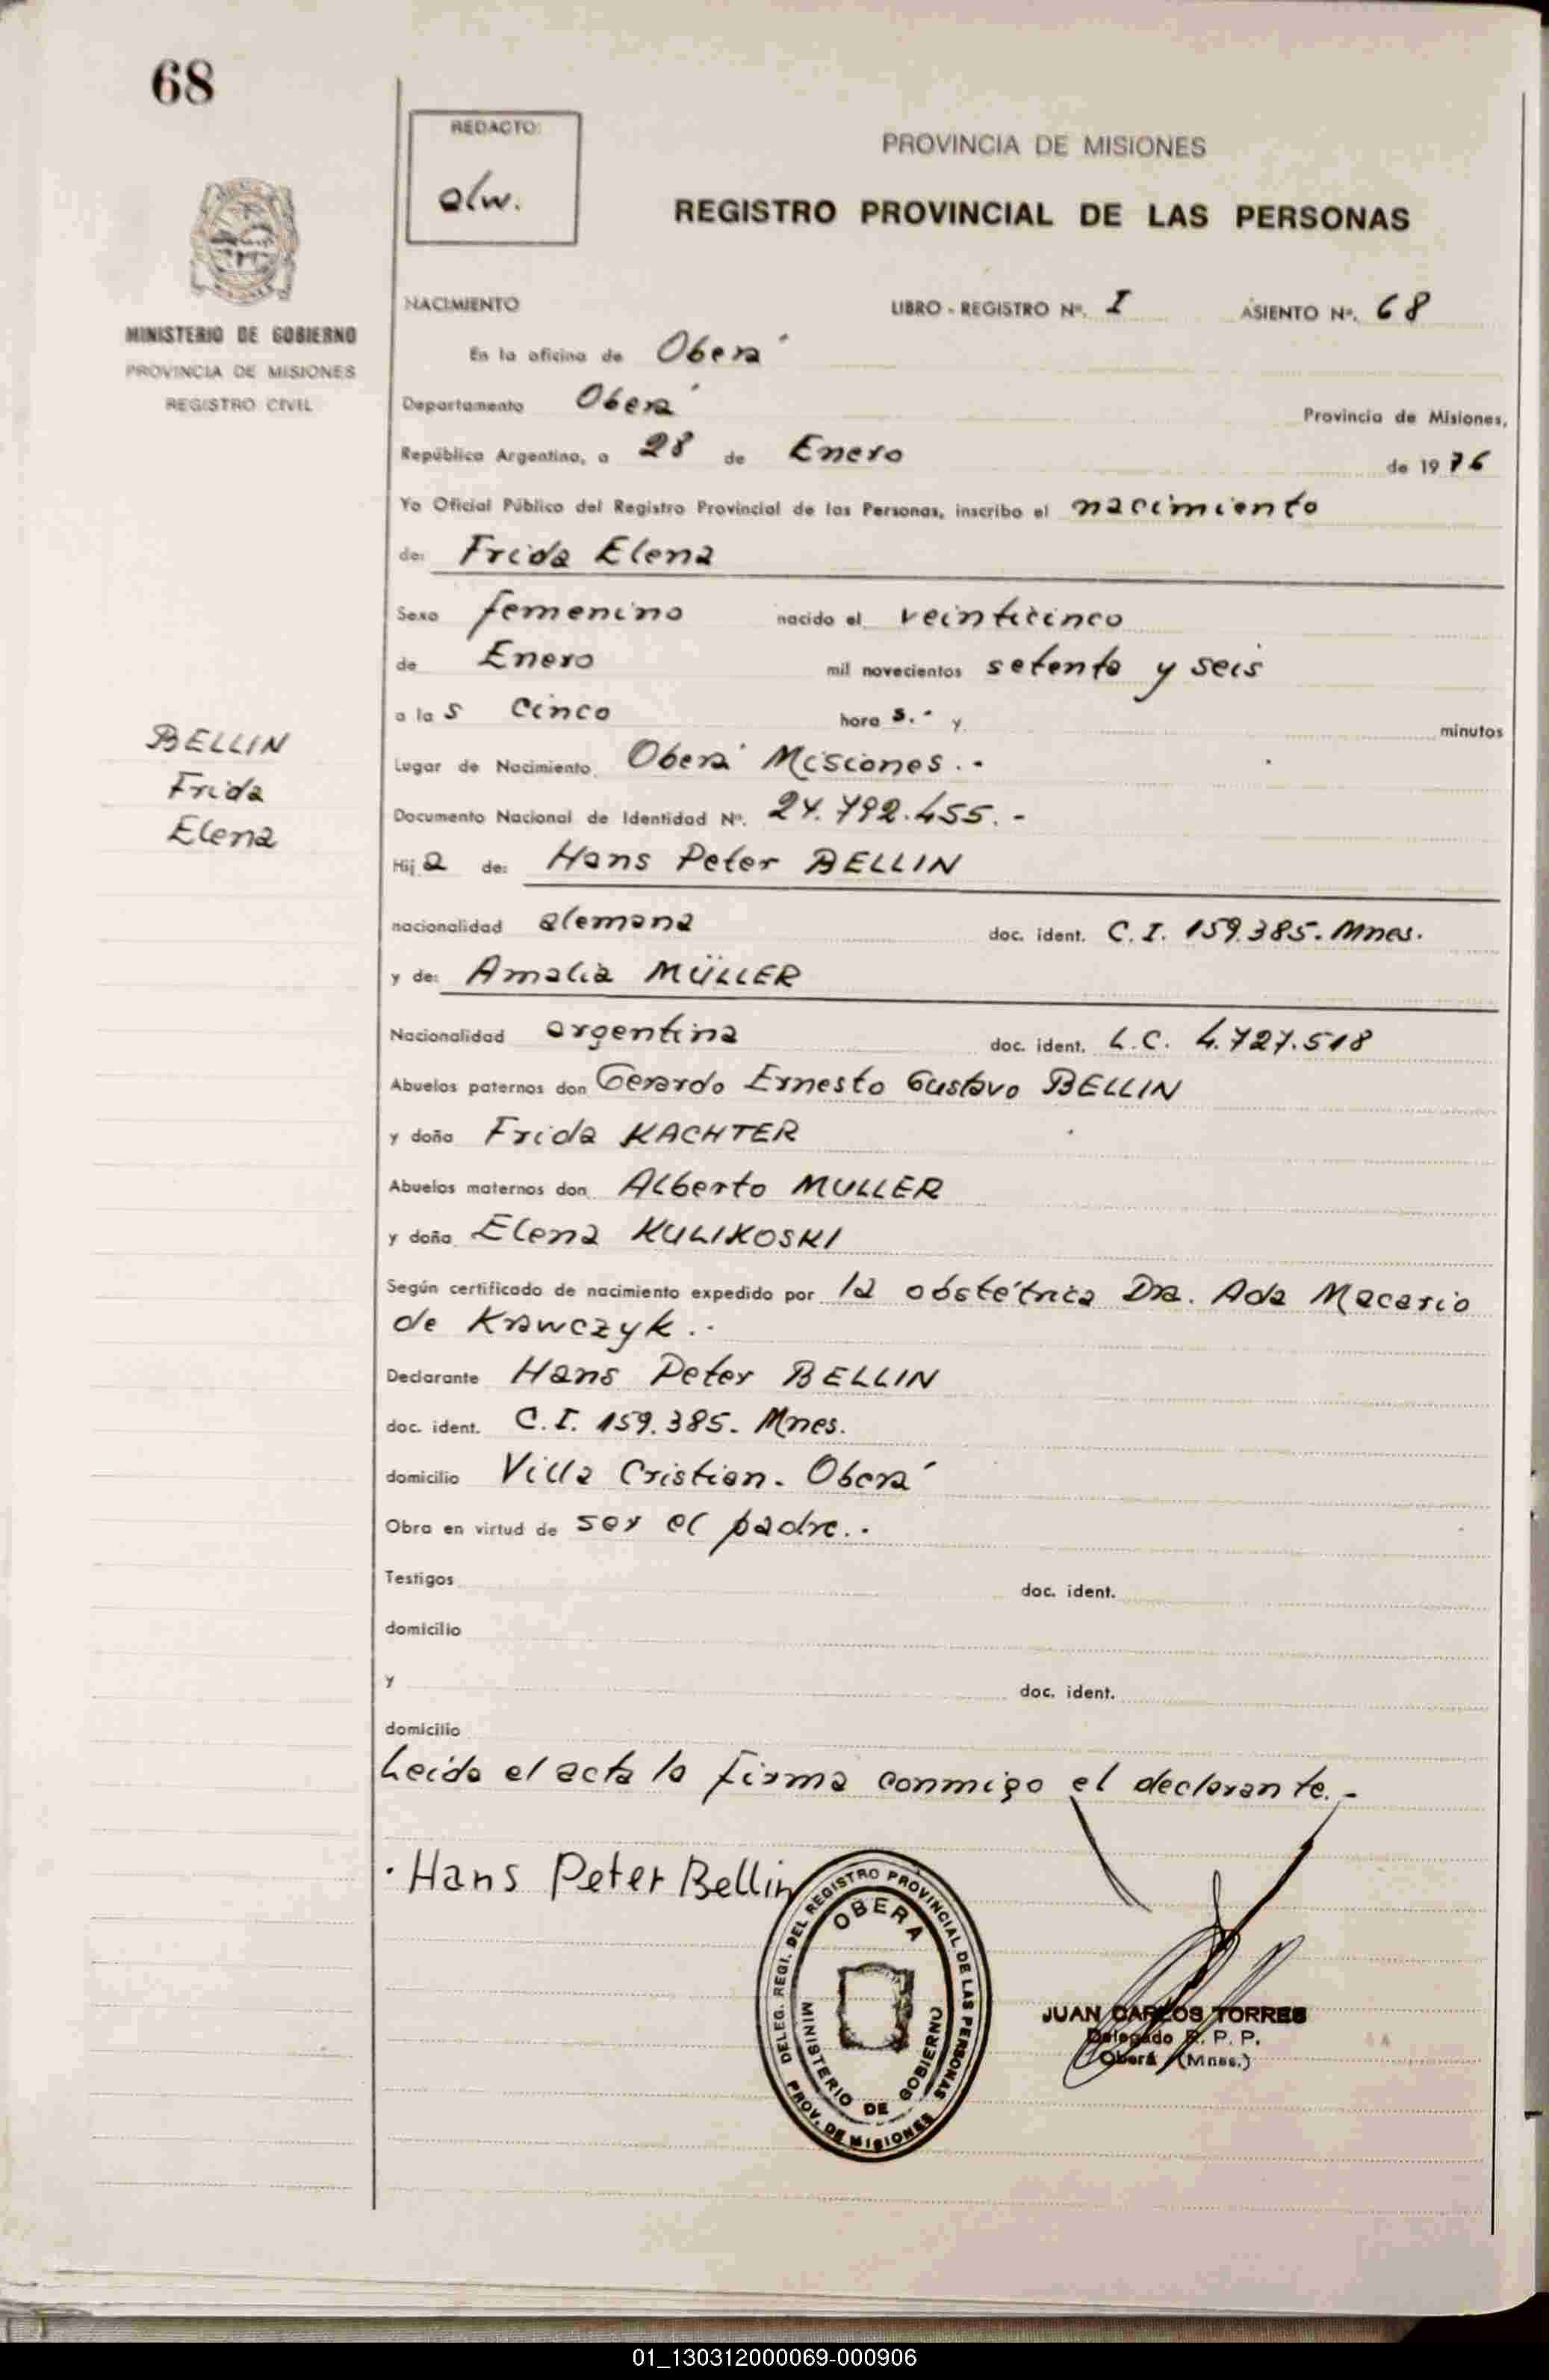 68
REDACTO:
alw.
PROVINCIA DE MISIONES
REGISTRO PROVINCIAL DE LAS PERSONAS
MINISTERIO DE GOBIERNO
PROVINCIA DE MISIONES
REGISTRO CIVIL
NACIMIENTO LIBRO - REGISTRO Nº. I ASIENTO Nº. 68
En la oficina de Oberá
Departamento Oberá Provincia de Misiones,
República Argentina, a 28 de Enero de 1976
Yo Oficial Público del Registro Provincial de las Personas, inscribo el nacimiento
de: Frida Elena
Sexo femenino nacido el veinticinco
de Enero mil novecientos setenta y seis
a las cinco hora s.- y minutos
BELLIN
Frida
Elena
Lugar de Nacimiento Oberá Misiones.-
Documento Nacional de Identidad Nº. 24.792.455.-
Hija de: Hans Peter BELLIN
nacionalidad alemana doc. ident. C.I. 159.385. Mnes.
y de: Amalia MÜLLER
Nacionalidad argentina doc. ident. L.C. 4.727.518
Abuelos paternos don Gerardo Ernesto Gustavo BELLIN
y doña Frida KACHTER
Abuelos maternos don Alberto MULLER
y doña Elena KULIKOSKI
Según certificado de nacimiento expedido por la obstétrica Dra. Ada Macario
de Krawczyk.-
Declarante Hans Peter BELLIN
doc. ident. C.I. 159.385. Mnes.
domicilio Villa Cristian. Oberá
Obra en virtud de ser el padre.-
Testigos doc. ident.
domicilio
y doc. ident.
domicilio
Leida el acta la firma conmigo el declarante.-
Hans Peter Bellin
DELEG. REGI. DEL REGISTRO PROVINCIAL DE LAS PERSONAS
OBERA
MINISTERIO DE GOBIERNO
PROV. DE MISIONES
JUAN CARLOS TORRES
Delegado R. P. P.
Oberá (Mnes.)
01_130312000069-000906